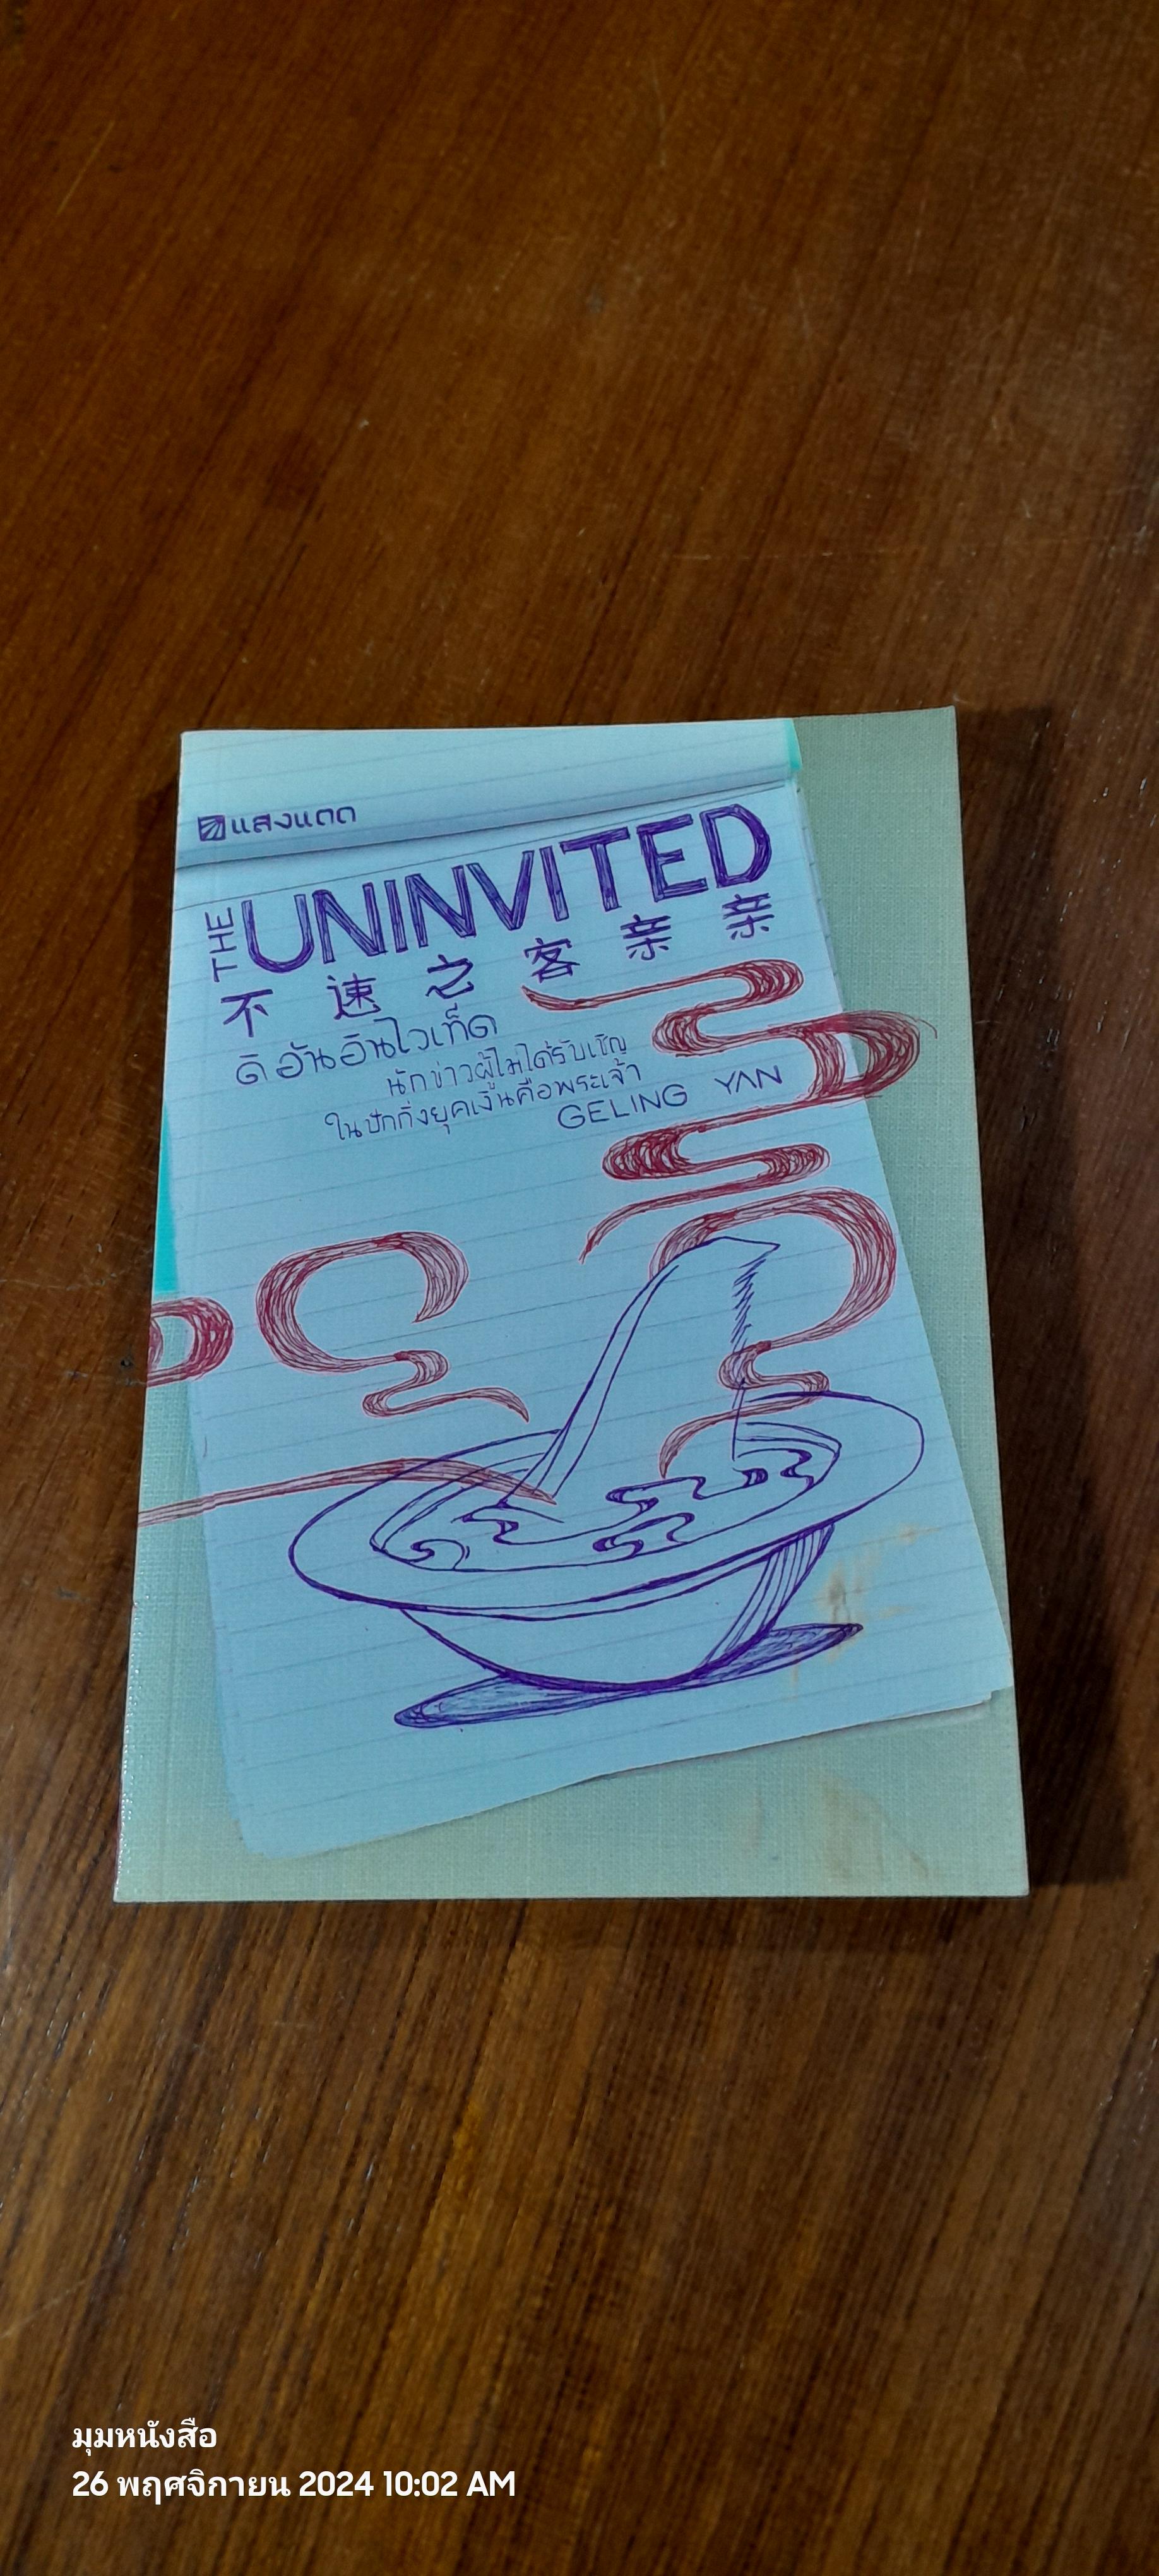 แสงแดด
THE UNINVITED
不速之客亲亲
ดิ อันอินไวเท็ด
นักข่าวผู้ไม่ได้รับเชิญ
ในปักกิ่งยุคเงินคือพระเจ้า
GELING YAN
มุมหนังสือ
26 พฤศจิกายน 2024 10:02 AM